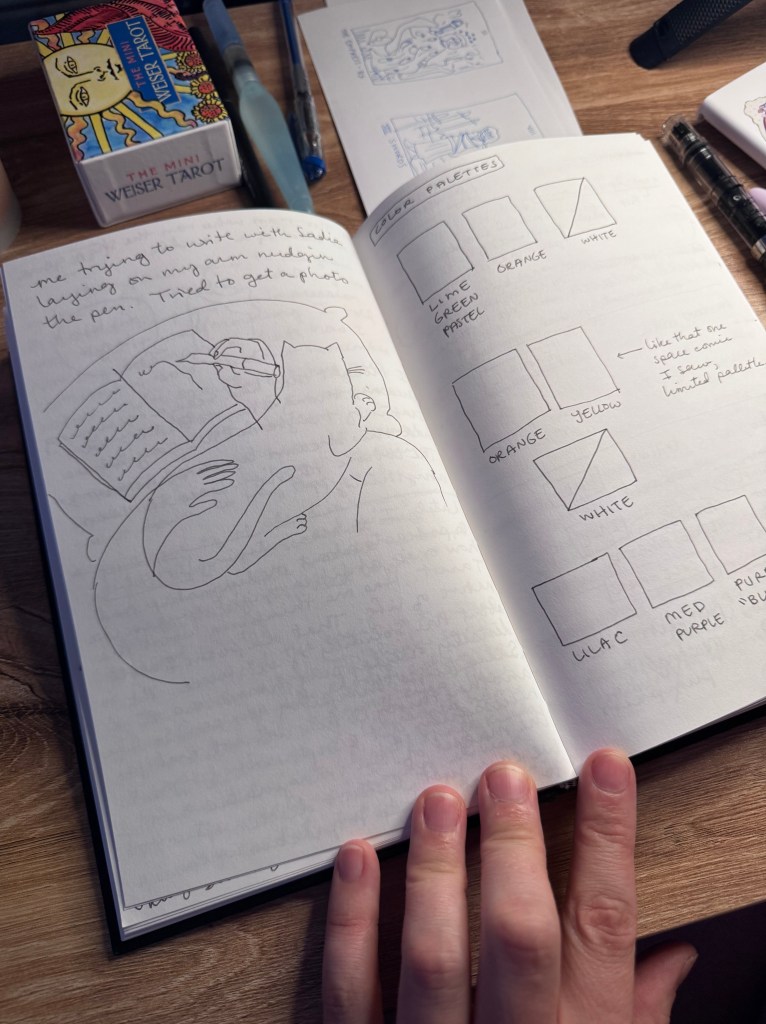 THE MINI
WEISER TAROT
THE MINI
WEISER TAROT
me trying to write with Sadie
laying on my arm nudgin
the pen. Tried to get a photo
COLOR PALETTES
LIME
GREEN
PASTEL
ORANGE
WHITE
ORANGE
YELLOW
like that one
space comic
I saw,
limited pallette
WHITE
LILAC
MED
PURPLE
PUR
"BL